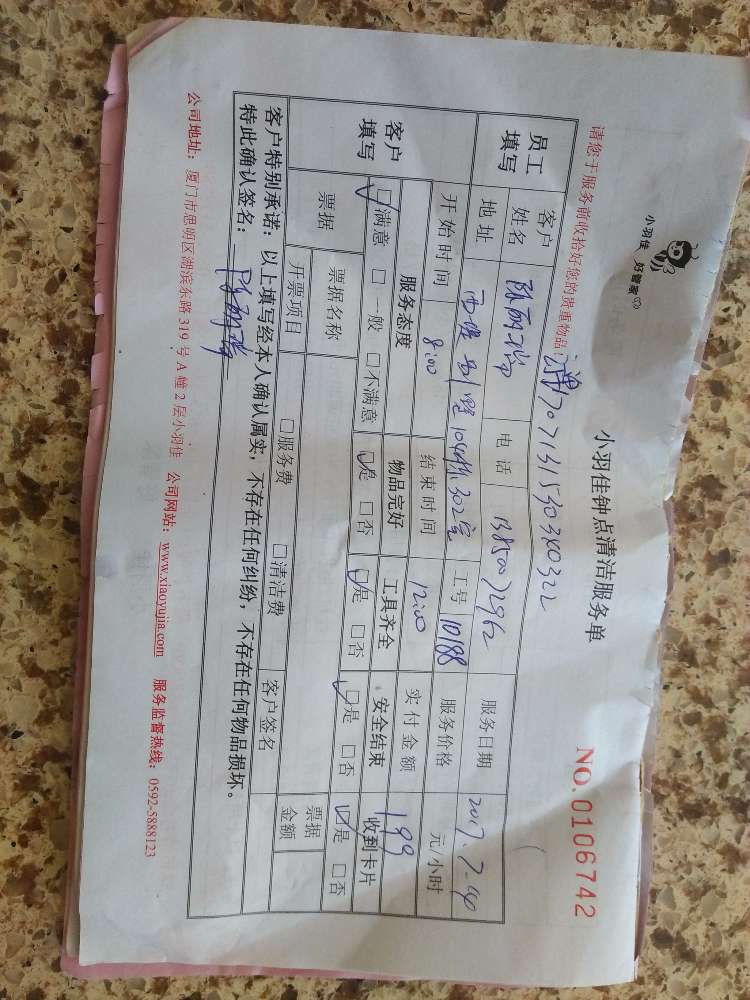 小羽佳 好管家
小羽佳钟点清洁服务单
NO.0106742
请您于服务前收拾好您的贵重物品! 17071315303800322
员工填写 客户姓名 陈丽瑞 电话 13850072962 服务日期 2017.7.
地址 西堤别墅104栋302室 工号 10188 服务价格 元/小时
客户填写 开始时间 8:00 结束时间 12:00 实付金额 199
服务态度 物品完好 工具齐全 安全结束 收到卡片
☑满意 □一般 □不满意 ☑是 □否 ☑是 □否 ☑是 □否 ☑是 □否
票据 票据名称 票据金额
开票项目 □服务费 □清洁费 客户签名
客户特别承诺:以上填写经本人确认属实,不存在任何纠纷,不存在任何物品损坏。
特此确认签名:
公司地址:厦门市思明区湖滨东路319号A幢2层小羽佳 公司网站:www.xiaoyujia.com 服务监督热线:0592-5888123